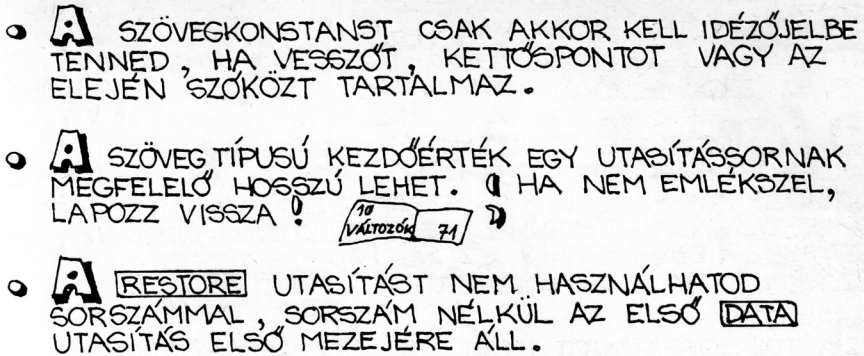 A SZÖVEGKONSTANST CSAK AKKOR KELL IDÉZŐJELBE
TENNED, HA VESSZŐT, KETTŐSPONTOT VAGY AZ
ELEJÉN SZÓKÖZT TARTALMAZ.
A SZÖVEG TÍPUSÚ KEZDŐÉRTÉK EGY UTASÍTÁSSORNAK
MEGFELELŐ HOSSZÚ LEHET. ( HA NEM EMLÉKSZEL,
LAPOZZ VISSZA! 10 VÁLTOZÓK 71 )
A RESTORE UTASÍTÁST NEM HASZNÁLHATOD
SORSZÁMMAL, SORSZÁM NÉLKÜL AZ ELSŐ DATA
UTASÍTÁS ELSŐ MEZEJÉRE ÁLL.